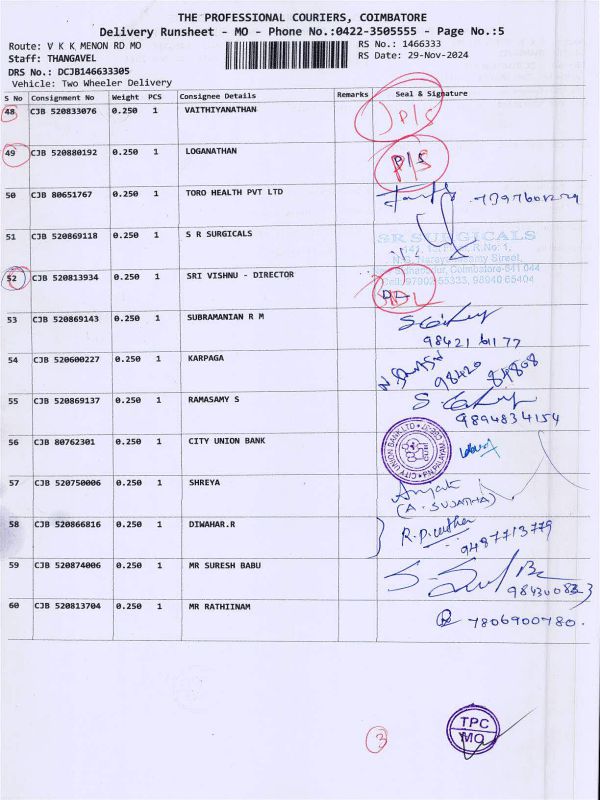 THE PROFESSIONAL COURIERS, COIMBATORE
Delivery Runsheet - MO - Phone No.:0422-3505555 - Page No.:5
Route: V K K MENON RD MO RS No.: 1466333
Staff: THANGAVEL RS Date: 29-Nov-2024
DRS No.: DCJB146633305
Vehicle: Two Wheeler Delivery
S No Consignment No Weight PCS Consignee Details Remarks Seal & Signature
48 CJB 520833076 0.250 1 VAITHIYANATHAN P/S
49 CJB 520880192 0.250 1 LOGANATHAN P/S
50 CJB 80651767 0.250 1 TORO HEALTH PVT LTD
51 CJB 520869118 0.250 1 S R SURGICALS
SR SURGICALS
Street,
Coimbatore-641 044
Cell: 97902 55333, 98940 65404
52 CJB 520813934 0.250 1 SRI VISHNU - DIRECTOR
53 CJB 520869143 0.250 1 SUBRAMANIAN R M
98421 61177
54 CJB 520600227 0.250 1 KARPAGA
98420 84808
55 CJB 520869137 0.250 1 RAMASAMY S
9894834154
56 CJB 80762301 0.250 1 CITY UNION BANK
CITY UNION BANK LTD
57 CJB 520750006 0.250 1 SHREYA
(A. SUJATHA)
58 CJB 520866816 0.250 1 DIWAHAR.R
9487713779
59 CJB 520874006 0.250 1 MR SURESH BABU
60 CJB 520813704 0.250 1 MR RATHIINAM
7806900780.
3
TPC
MO